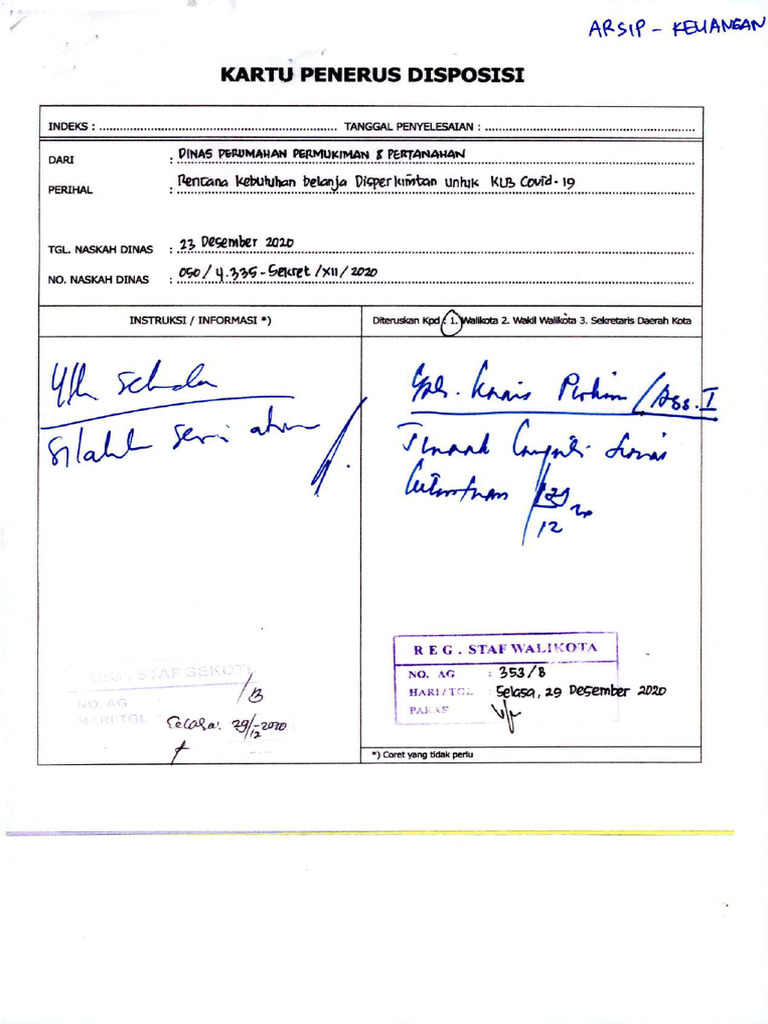 ARSIP - KEUANGAN
KARTU PENERUS DISPOSISI
INDEKS : ............ TANGGAL PENYELESAIAN : ............
DARI : DINAS PERUMAHAN PERMUKIMAN & PERTANAHAN
PERIHAL : Rencana Kebutuhan belanja Disperkimtan untuk KLB Covid-19
TGL. NASKAH DINAS : 23 Desember 2020
NO. NASKAH DINAS : 050/4.335-Sekret/XII/2020
INSTRUKSI / INFORMASI *)
Diteruskan Kpd : 1. Walikota 2. Wakil Walikota 3. Sekretaris Daerah Kota
Yth Sekda
Silahk
/Ass. I
29
12
REG. STAF SEKOT
NO. AG /B
HARI/TGL Selasa. 29/12-2020
REG. STAF WALIKOTA
NO. AG : 353/B
HARI/TGL : Selasa, 29 Desember 2020
PARAF
*) Coret yang tidak perlu